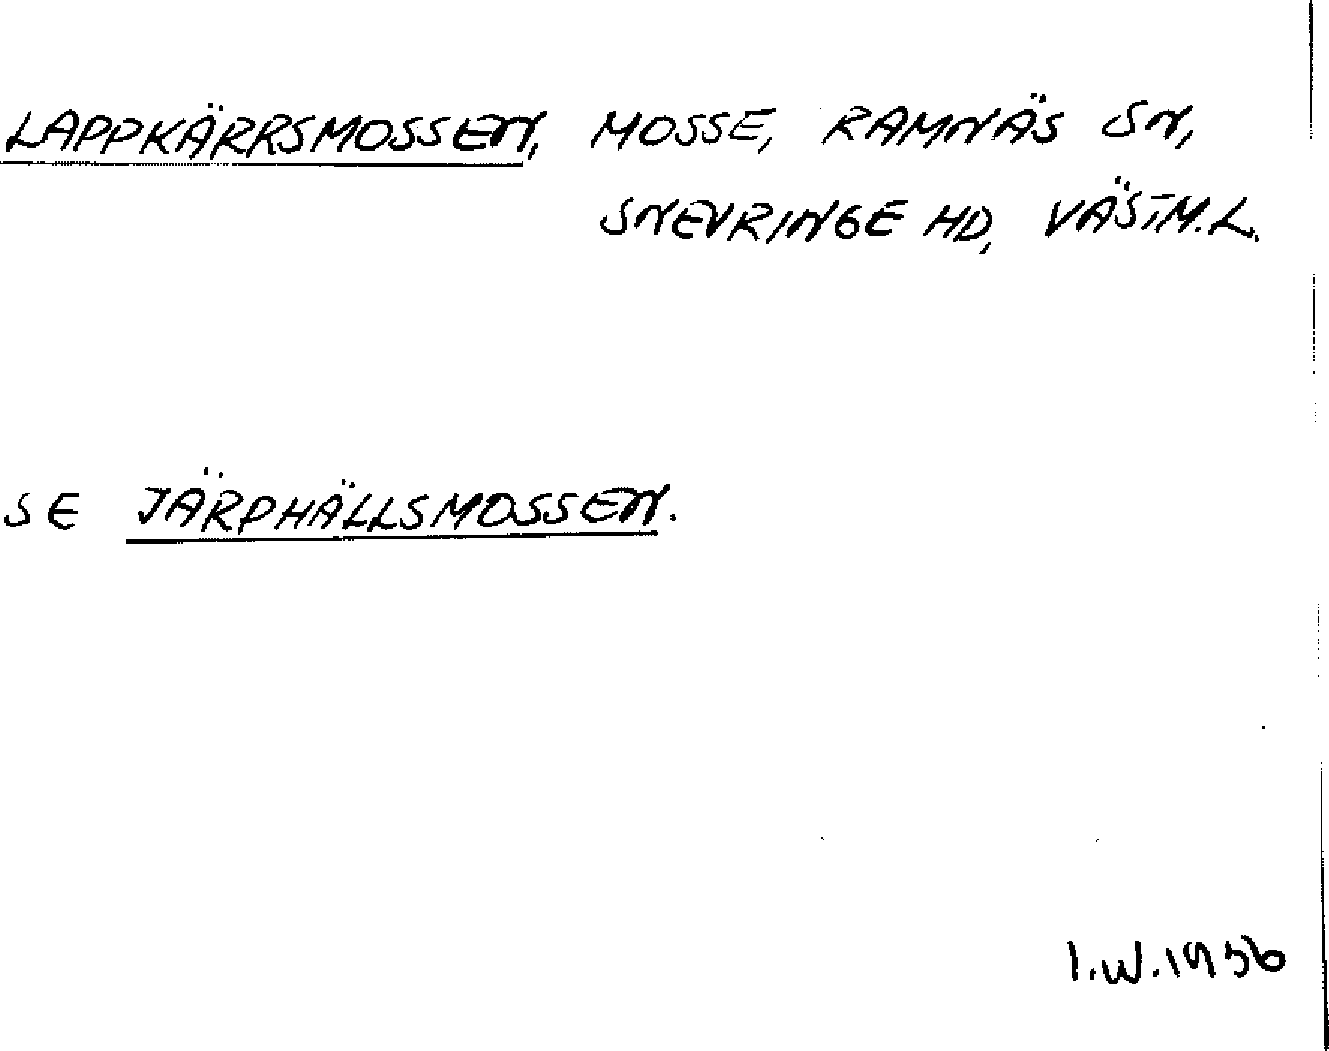 LAPPKÄRRSMOSSEN, MOSSE, RAMNÄS SN,
SNEVRINGE HD, VÄSTM.L.
SE JÄRPHÄLLSMOSSEN.
I.W.1956